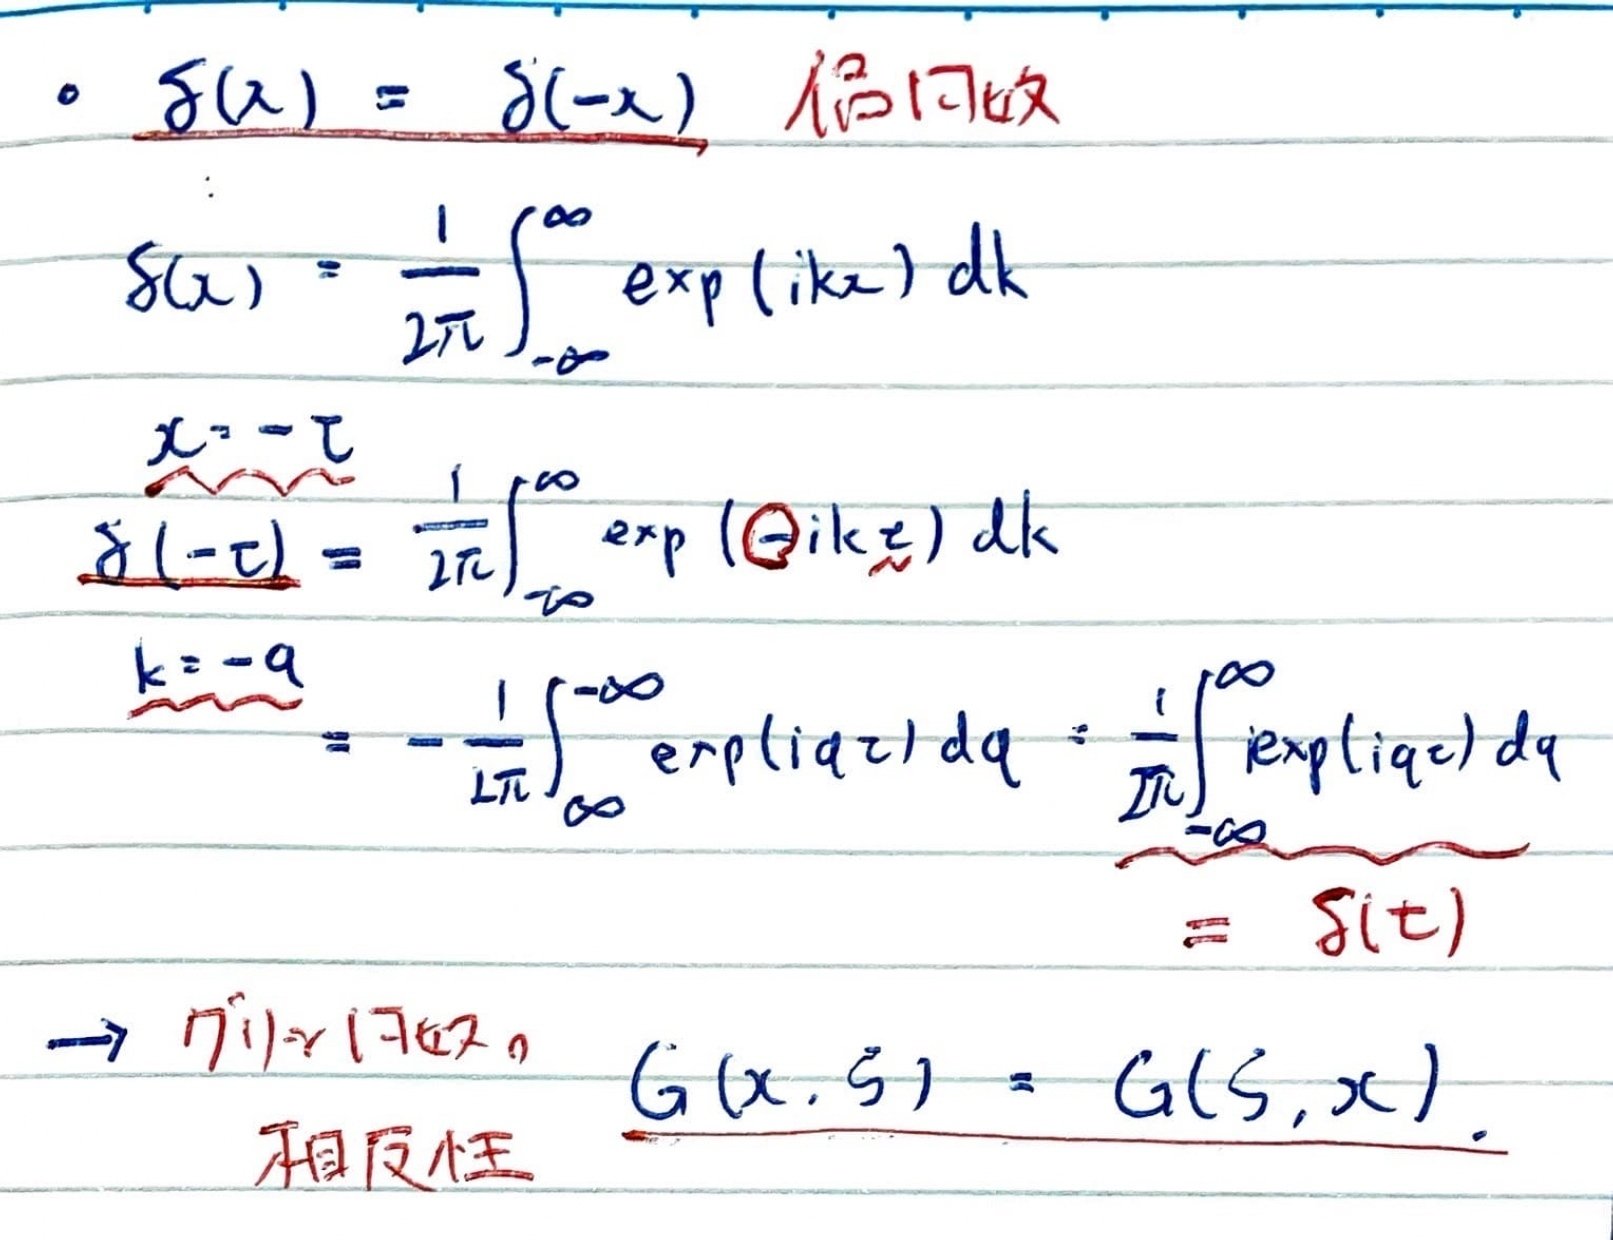 • δ(x) = δ(-x) 偶関数
δ(x) = 1/2π ∫_{-∞}^{∞} exp(ikx) dk
x = -τ
δ(-τ) = 1/2π ∫_{-∞}^{∞} exp(-ikτ) dk
k = -q
= - 1/2π ∫_{∞}^{-∞} exp(iqτ) dq = 1/2π ∫_{-∞}^{∞} exp(iqτ) dq
= δ(τ)
→ グリーン関数の G(x, ζ) = G(ζ, x).
相反性